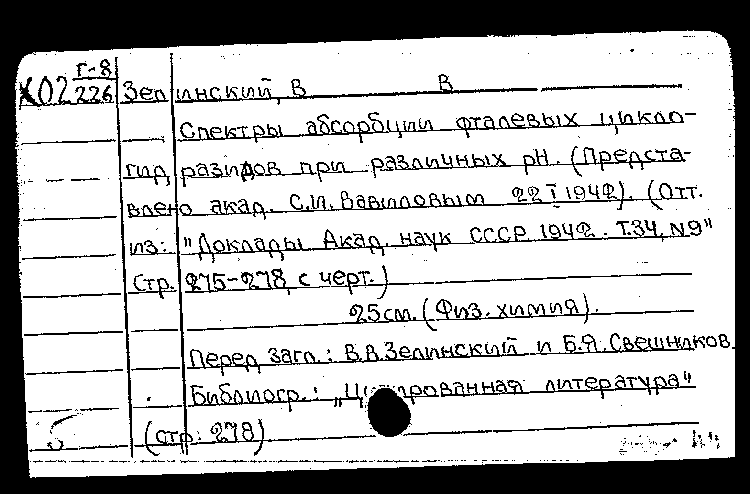 Х02 Г-8/226 Зелинский, В В
Спектры абсорбции фталевых цикло-
гидразидов при различных рН. (Предста-
влено акад. С.И. Вавиловым 22 I 1942). (Отт.
из: "Доклады Акад. наук СССР. 1942. Т.34, N9"
Стр. 275-278, с черт.)
25см. (Физ. химия).
Перед загл.: В.В.Зелинский и Б.Я.Свешников.
Библиогр.: „Цитированная литература"
(стр: 278)